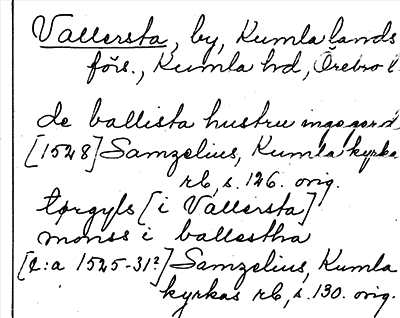 Vallersta, by, Kumla lands
förs., Kumla hd, Örebro l.
de ballista hustru ingegerd
[1528] Samzelius, Kumla kyrka
rb, s. 126. orig.
torgyls [i Vallersta]
monss i ballestha
[c:a 1525-31?] Samzelius, Kumla
kyrkas rb, s. 130. orig.